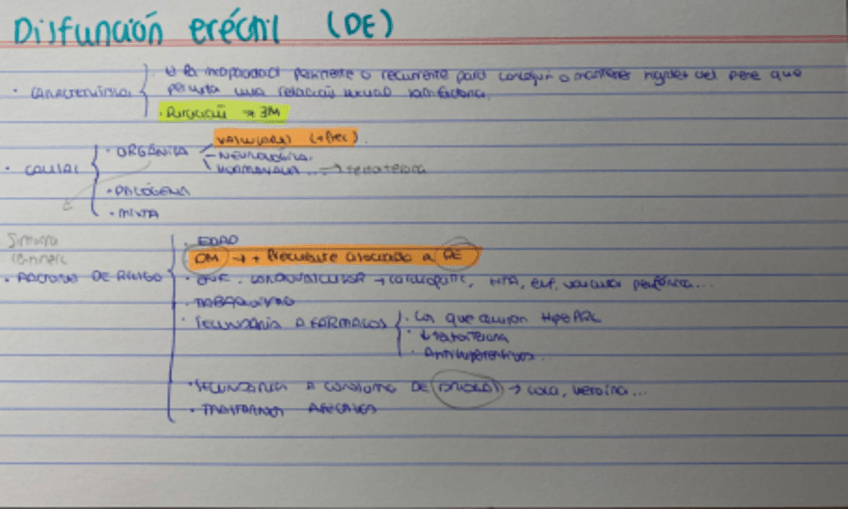 Disfunción eréctil (DE)
· CARACTERÍSTICAS es la incapacidad persistente o recurrente para conseguir o mantener rigidez del pene que
permita una relación sexual satisfactoria.
· Duración → 3M
VASCULARES (+ frec).
· CAUSAS · ORGÁNICA - NEUROLÓGICA
HORMONALES ... → testosterona
· PSICÓGENA
· MIXTA
· EDAD
DM → + Frecuente asociado a DE
· FACTORES DE RIESGO · ENF. CARDIOVASCULAR → cardiopatía, HTA, enf. vascular periférica...
· TABAQUISMO
· SECUNDARIA A FÁRMACOS · Los que causan
· ↓ testosterona
· Antihipertensivos...
· SECUNDARIA A CONSUMO DE DROGAS → coca, heroína...
· TRASTORNOS AFECTIVOS